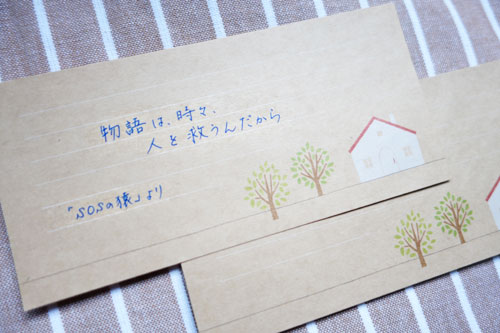 物語は、時々、
人を救うんだから
「SOSの猿」より